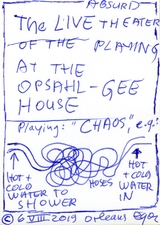 ABSURD
The LIVE THEATER
OF THE PLAYING
AT THE
OPSAHL-GEE
HOUSE
Playing: "CHAOS", e.g.:
HOT
+
COLD
WATER TO
SHOWER
HOSES
HOT
+
COLD
WATER
IN
© 6 VIII 2019 orleans